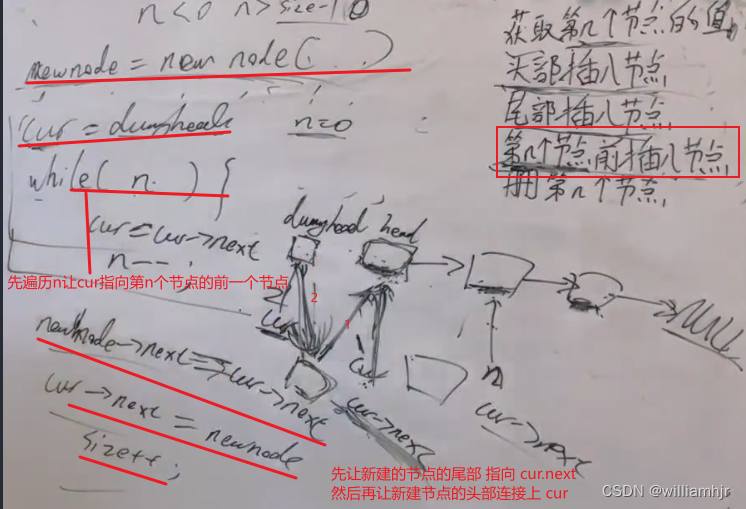 n<0 n>size-1
newnode = new node( . . )
cur = dumyhead n=0
while( n ) {
cur = cur->next
n--;
先遍历n让cur指向第n个节点的前一个节点
newnode->next = cur->next
cur->next = newnode
size++;
获取第n个节点的值
头部插入节点
尾部插入节点
第n个节点前插入节点
删第n个节点
dumyhead head
2
2
1
cur
cur->next
n
cur->next
NULL
先让新建的节点的尾部 指向 cur.next
然后再让新建节点的头部连接上 cur
CSDN @williamhjr